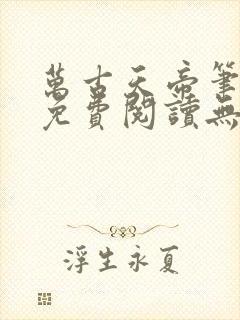 萬古天帝筆
免費閱讀無
浮生永夏